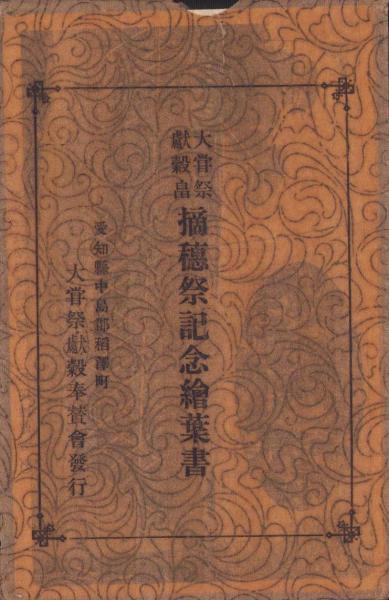 大甞祭
獻穀畠
摘穗祭記念繪葉書
愛知縣中島郡稻澤町
大甞祭獻穀奉贊會發行